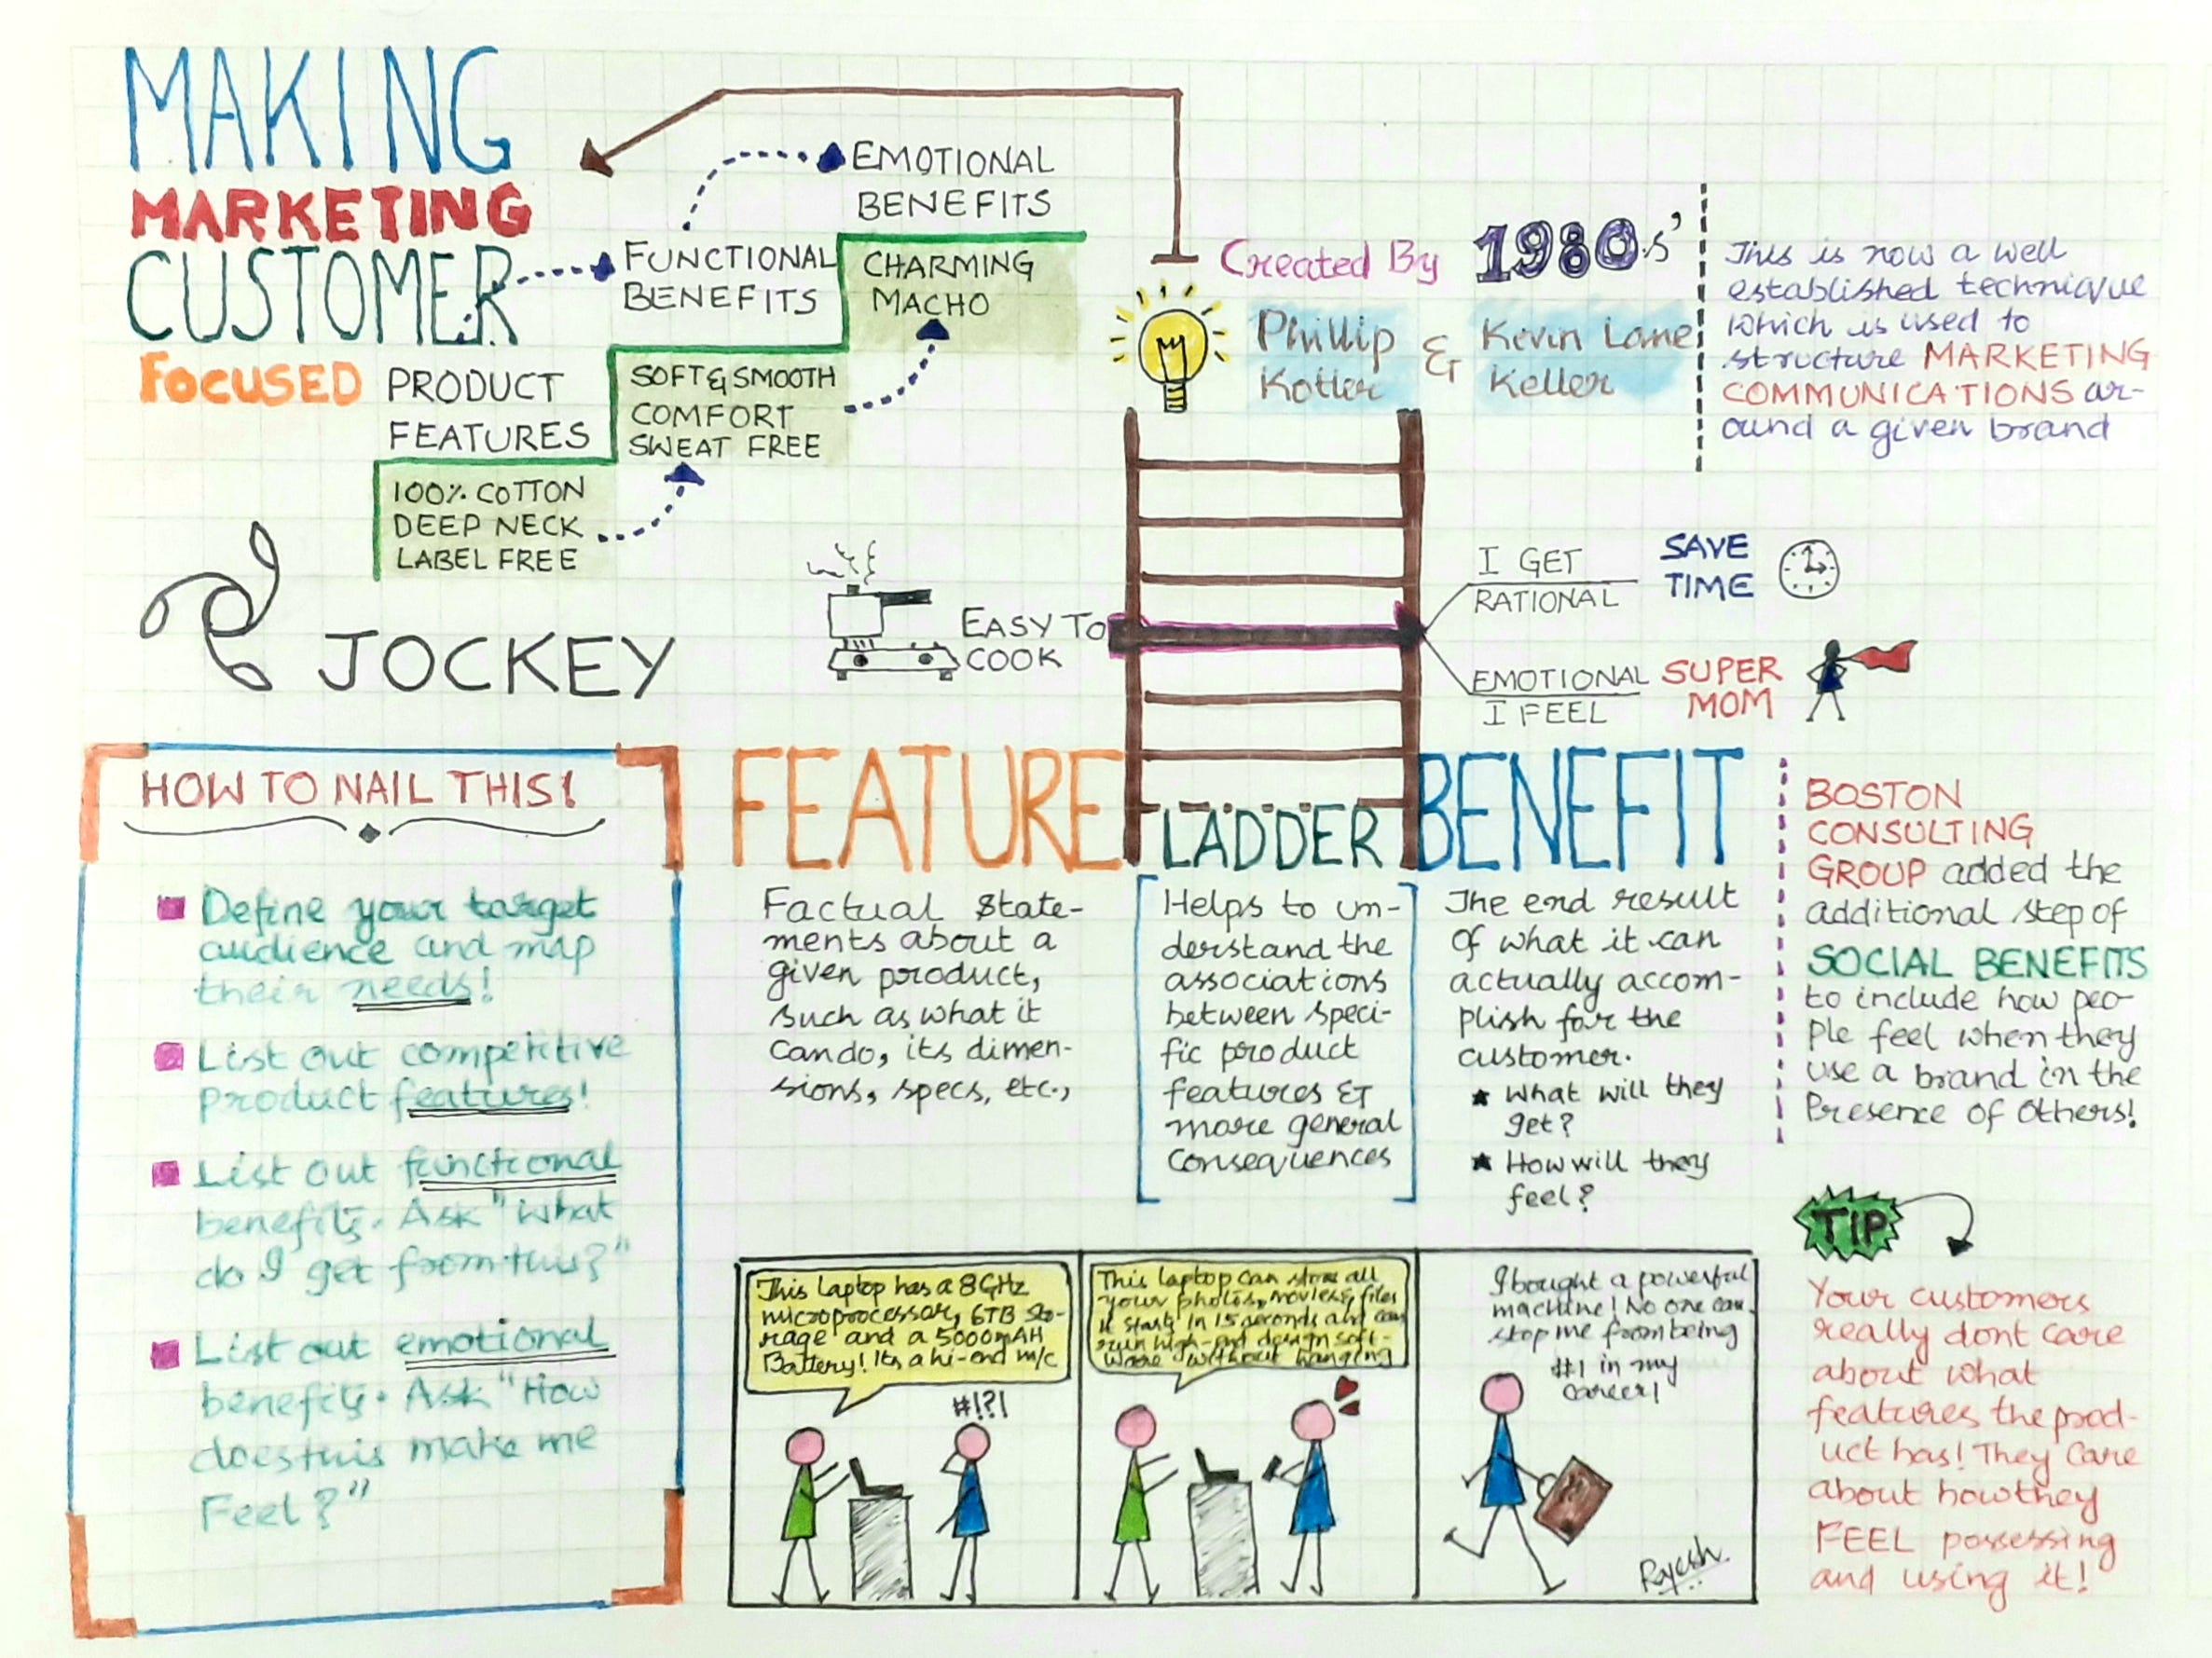 MAKING
MARKETING
CUSTOMER
FOCUSED
PRODUCT
FEATURES
100% COTTON
DEEP NECK
LABEL FREE
FUNCTIONAL
BENEFITS
SOFT & SMOOTH
COMFORT
SWEAT FREE
EMOTIONAL
BENEFITS
CHARMING
MACHO
JOCKEY
Created By 1980s'
Phillip
Kotler
&
Kevin Lane
Keller
This is now a well
established technique
which is used to
structure MARKETING
COMMUNICATIONS ar-
ound a given brand
EASY TO
COOK
I GET
RATIONAL
SAVE
TIME
EMOTIONAL
I FEEL
SUPER
MOM
HOW TO NAIL THIS!
Define your target
audience and map
their needs!
List out competitive
product features!
List out functional
benefits. Ask "what
do I get from this?"
List out emotional
benefits. Ask "How
does this make me
Feel?"
FEATURE
Factual state-
ments about a
given product,
such as what it
can do, its dimen-
sions, specs, etc.,
LADDER
Helps to un-
derstand the
associations
between speci-
fic product
features &
more general
consequences
BENEFIT
The end result
of what it can
actually accom-
plish for the
customer.
★ What will they
get?
★ How will they
feel?
BOSTON
CONSULTING
GROUP added the
additional step of
SOCIAL BENEFITS
to include how peo-
ple feel when they
use a brand in the
Presence of Others!
This Laptop has a 8GHz
microprocessor, 6TB Sto-
rage and a 5000mAH
Battery! Its a hi-end m/c
#!?!
This laptop can store all
your photos, movies, files
It starts in 15 seconds and can
run high-end design soft-
ware without hanging
I bought a powerful
machine! No one can
stop me from being
#1 in my
career!
Rajesh
TIP
Your customers
really dont care
about what
features the prod-
uct has! They care
about how they
FEEL possessing
and using it!